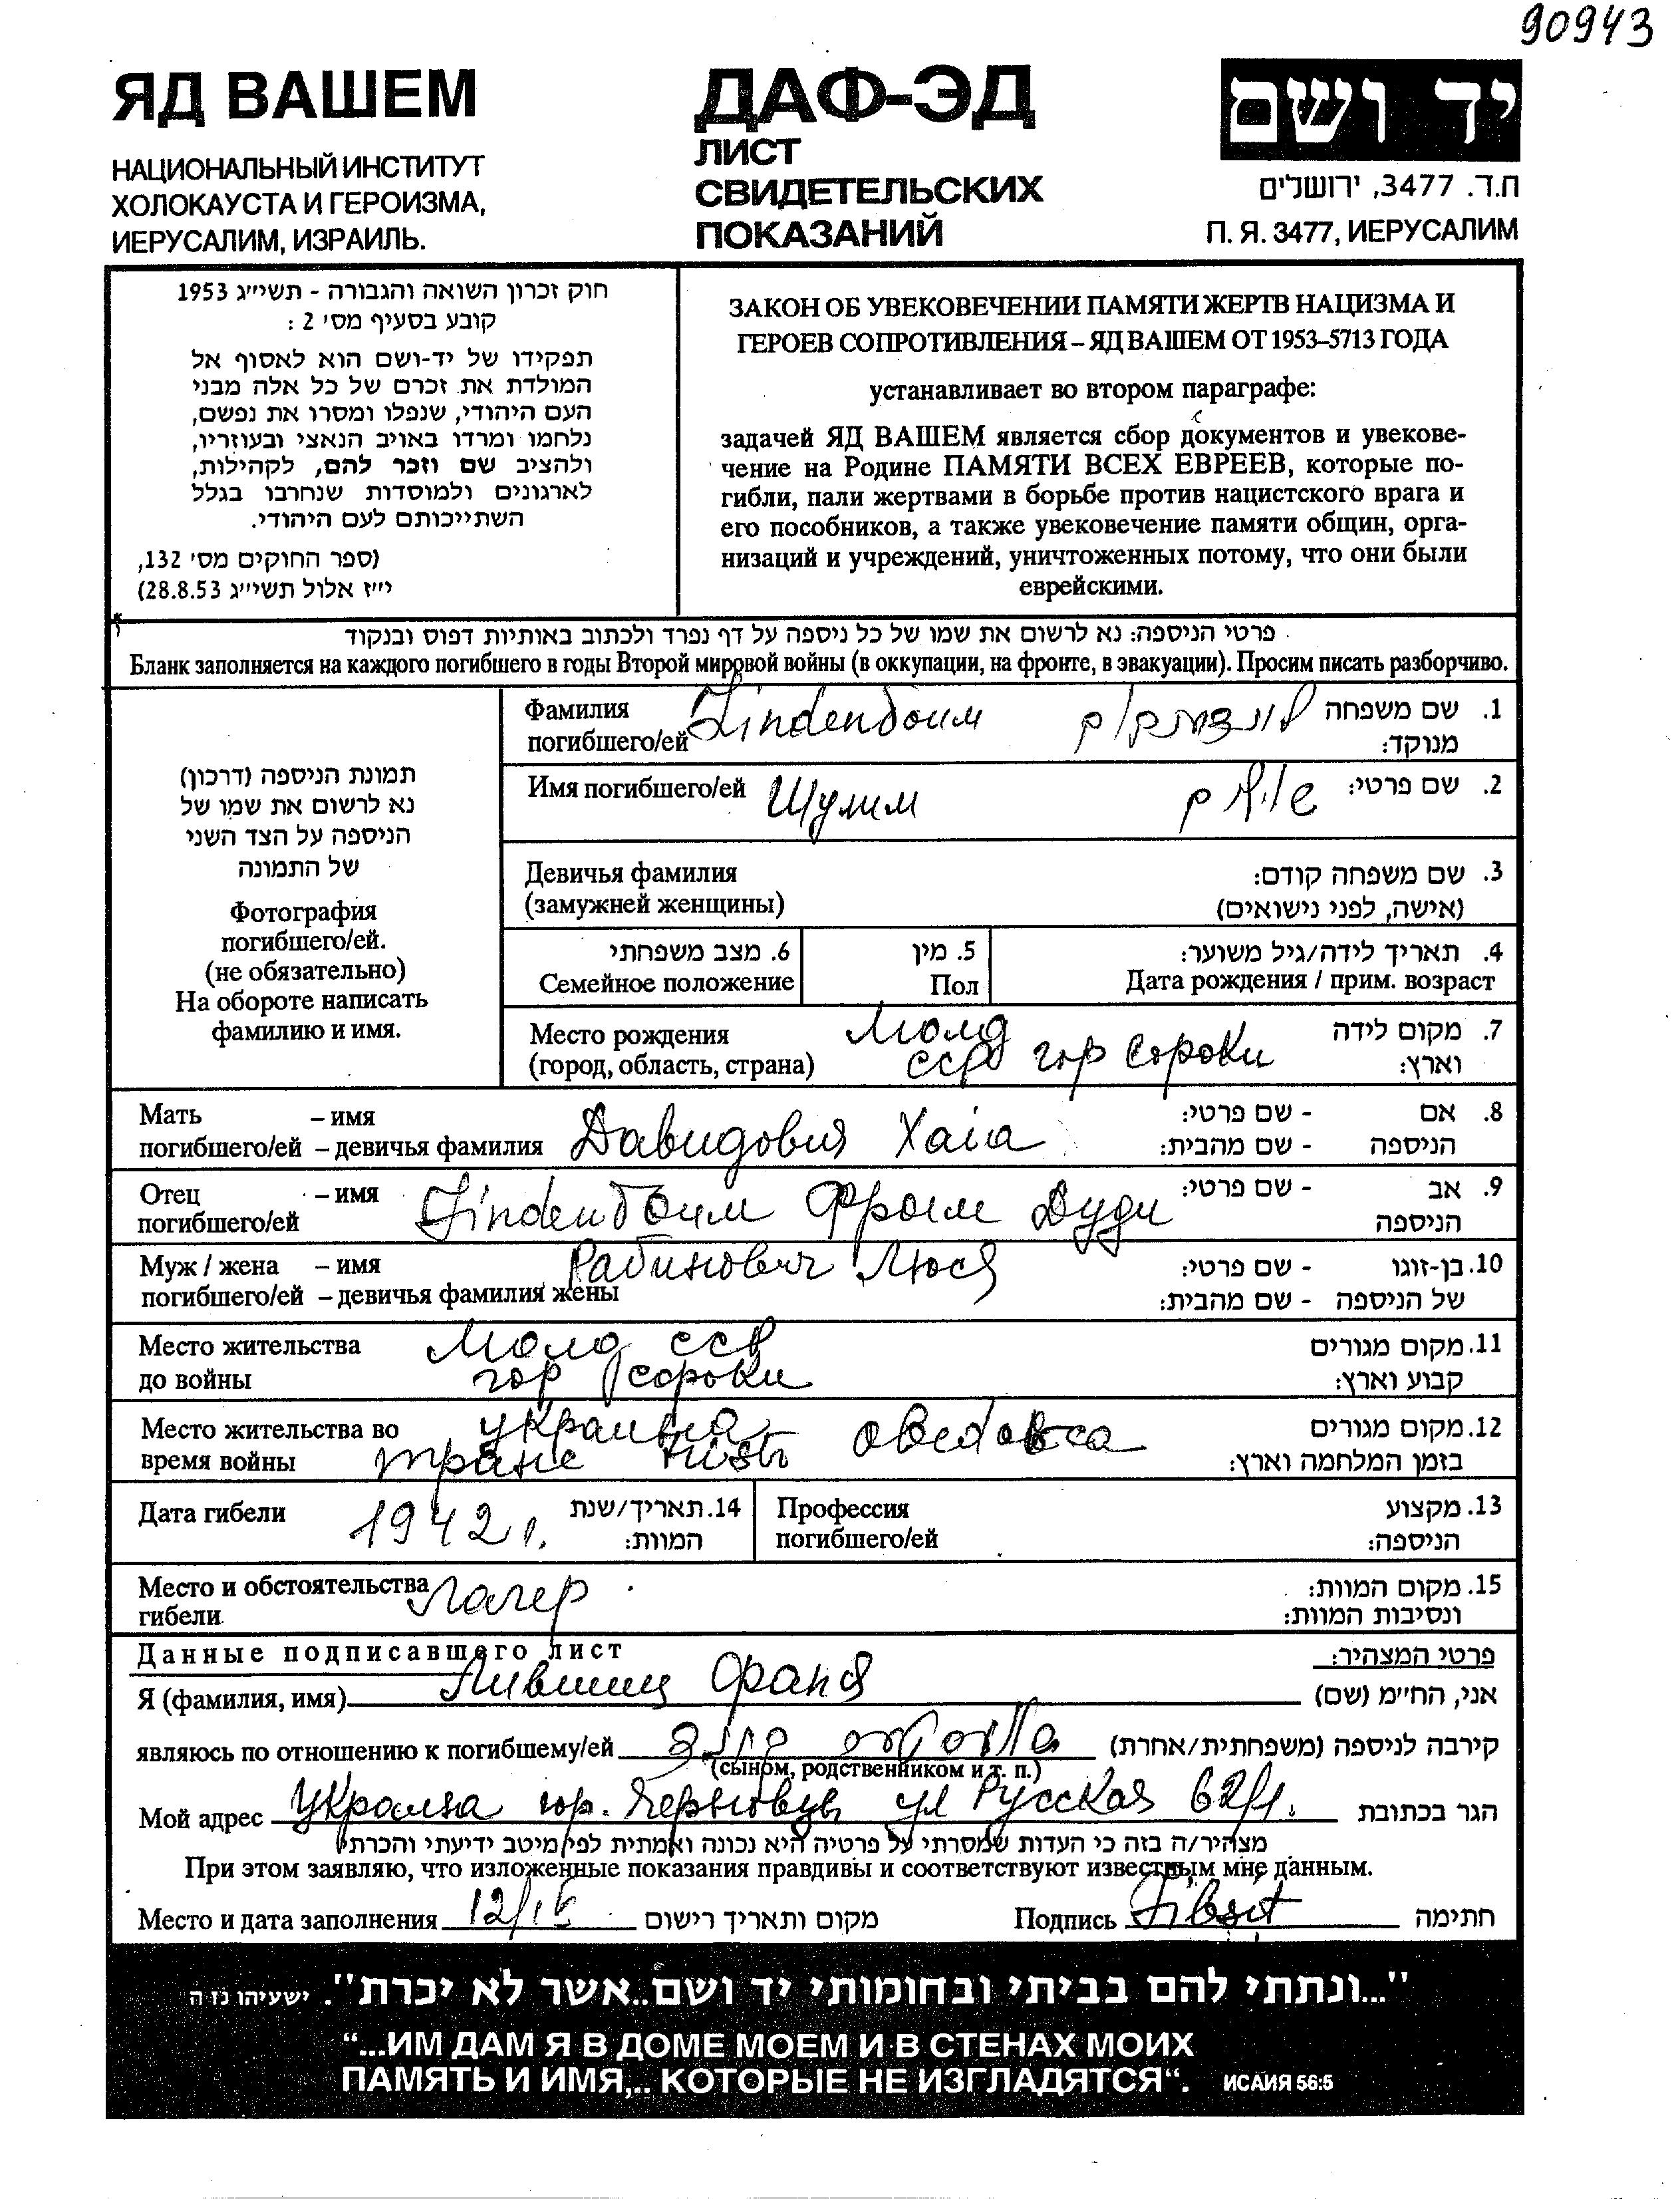 90943
ЯД ВАШЕМ
НАЦИОНАЛЬНЫЙ ИНСТИТУТ
ХОЛОКАУСТА И ГЕРОИЗМА,
ИЕРУСАЛИМ, ИЗРАИЛЬ.
ДАФ-ЭД
ЛИСТ
СВИДЕТЕЛЬСКИХ
ПОКАЗАНИЙ
יד ושם
ת.ד. 3477, ירושלים
П. Я. 3477, ИЕРУСАЛИМ
חוק זכרון השואה והגבורה - תשי״ג 1953
קובע בסעיף מס׳ 2 :
תפקידו של יד-ושם הוא לאסוף אל
המולדת את זכרם של כל אלה מבני
העם היהודי, שנפלו ומסרו את נפשם,
נלחמו ומרדו באויב הנאצי ובעוזריו,
ולהציב שם וזכר להם, לקהילות,
לארגונים ולמוסדות שנחרבו בגלל
השתייכותם לעם היהודי.
(ספר החוקים מס׳ 132,
י״ז אלול תשי״ג 28.8.53)
ЗАКОН ОБ УВЕКОВЕЧЕНИИ ПАМЯТИ ЖЕРТВ НАЦИЗМА И
ГЕРОЕВ СОПРОТИВЛЕНИЯ – ЯД ВАШЕМ ОТ 1953–5713 ГОДА
устанавливает во втором параграфе:
задачей ЯД ВАШЕМ является сбор документов и увекове-
чение на Родине ПАМЯТИ ВСЕХ ЕВРЕЕВ, которые по-
гибли, пали жертвами в борьбе против нацистского врага и
его пособников, а также увековечение памяти общин, орга-
низаций и учреждений, уничтоженных потому, что они были
еврейскими.
פרטי הניספה: נא לרשום את שמו של כל ניספה על דף נפרד ולכתוב באותיות דפוס ובנקוד
Бланк заполняется на каждого погибшего в годы Второй мировой войны (в оккупации, на фронте, в эвакуации). Просим писать разборчиво.
תמונת הניספה (דרכון)
נא לרשום את שמו של
הניספה על הצד השני
של התמונה
Фотография
погибшего/ей.
(не обязательно)
На обороте написать
фамилию и имя.
Фамилия Lindenбоим 1. שם משפחה
погибшего/ей מנוקד:
Имя погибшего/ей Шулим 2. שם פרטי:
Девичья фамилия 3. שם משפחה קודם:
(замужней женщины) (אישה, לפני נישואים)
6. מצב משפחתי 5. מין 4. תאריך לידה/גיל משוער:
Семейное положение Пол Дата рождения / прим. возраст
Место рождения Молд 7. מקום לידה
(город, область, страна) ССР гор Сороки וארץ:
Мать – имя 8. אם - שם פרטי:
погибшего/ей – девичья фамилия Давидович Хаіа הניספה - שם מהבית:
Отец – имя 9. אב - שם פרטי:
погибшего/ей Lindenбоим Фроим Дуди הניספה
Муж / жена – имя Рабинович Люся 10. בן-זוגו - שם פרטי:
погибшего/ей – девичья фамилия жены של הניספה - שם מהבית:
Место жительства Молд ССР 11. מקום מגורים
до войны гор Сороки קבוע וארץ:
Место жительства во Украина 12. מקום מגורים
время войны בזמן המלחמה וארץ:
Дата гибели 1942 г. 14. תאריך/שנת Профессия 13. מקצוע
המוות: погибшего/ей הניספה:
Место и обстоятельства Лагер 15. מקום המוות:
гибели ונסיבות המוות:
Данные подписавшего лист פרטי המצהיר:
Я (фамилия, имя) Лившиц Фаня אני, הח״מ (שם)
являюсь по отношению к погибшему/ей קירבה לניספה (משפחתית/אחרת)
(сыном, родственником и т. п.)
Мой адрес Украина гор. Черновцы ул Русская 62/1. הגר בכתובת
מצהיר/ה בזה כי העדות שמסרתי על פרטיה היא נכונה ואמתית לפי מיטב ידיעתי והכרתי
При этом заявляю, что изложенные показания правдивы и соответствуют известным мне данным.
Место и дата заполнения מקום ותאריך רישום Подпись חתימה
"...ונתתי להם בביתי ובחומותי יד ושם..אשר לא יכרת". ישעיהו נו ה
“...ИМ ДАМ Я В ДОМЕ МОЕМ И В СТЕНАХ МОИХ
ПАМЯТЬ И ИМЯ,.. КОТОРЫЕ НЕ ИЗГЛАДЯТСЯ“. ИСАИЯ 56:5